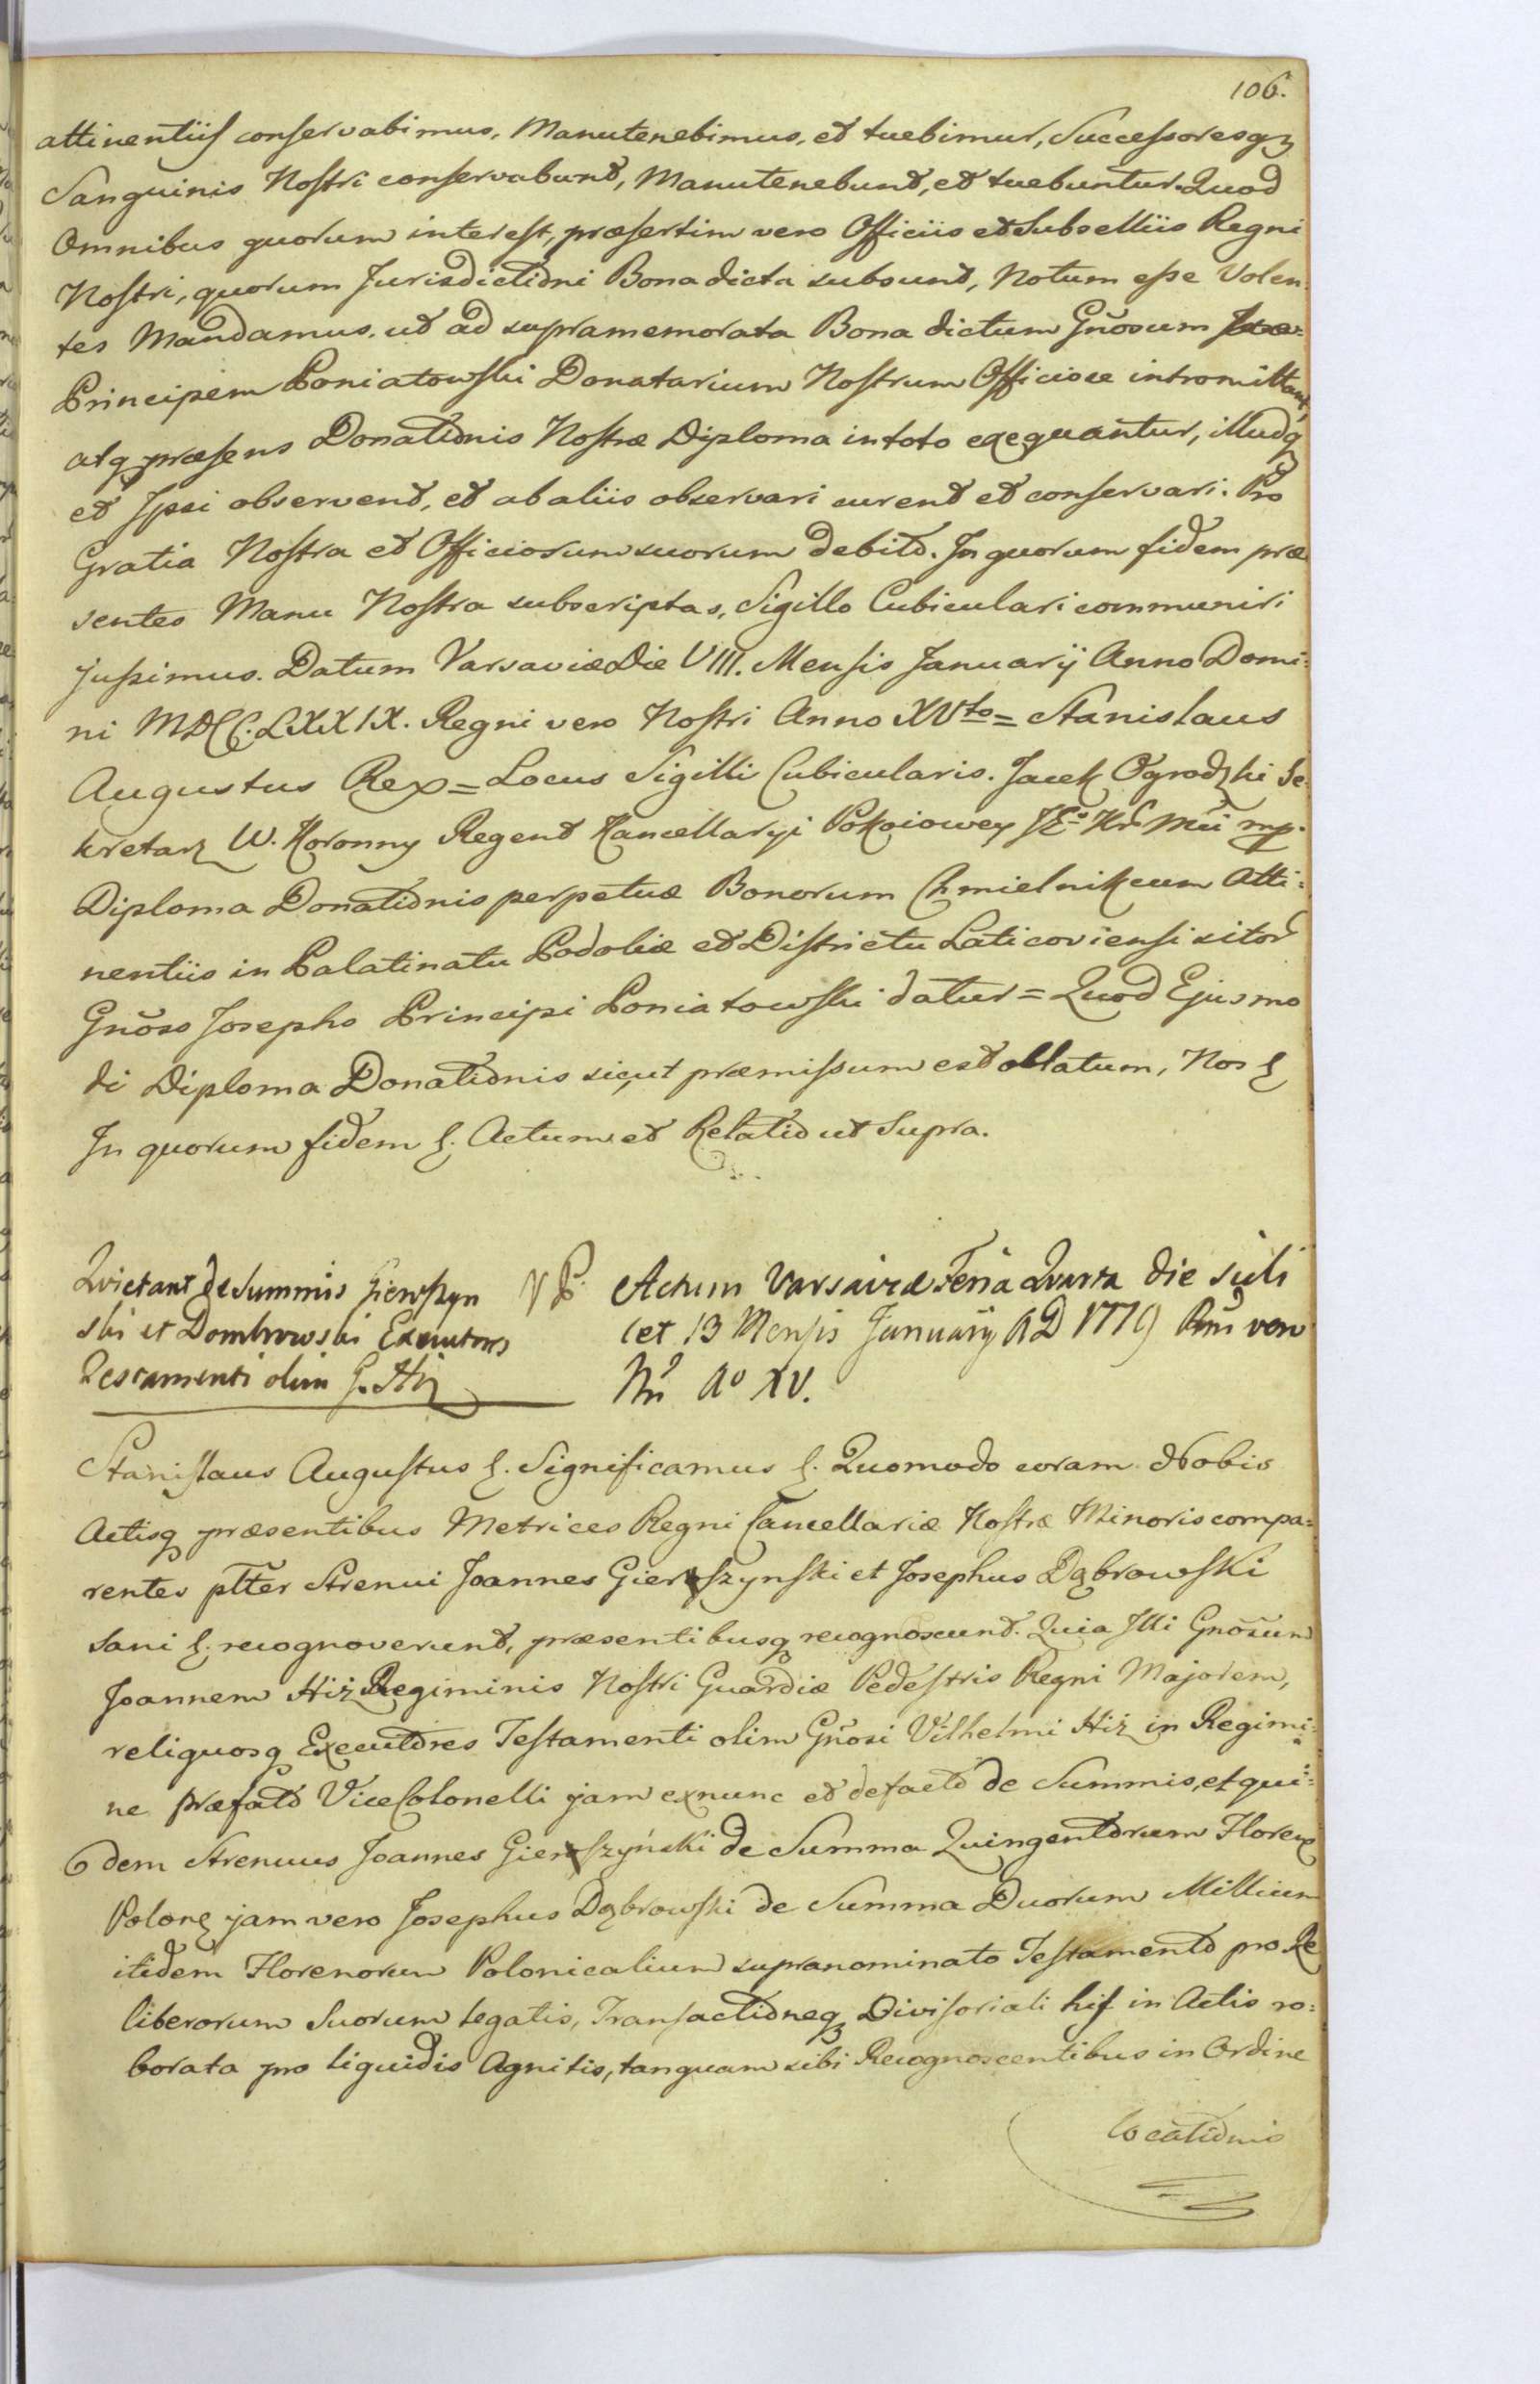 106.
attinentiis conservabimus, Manutenebimus, et tuebimur, Successoresq
Sanguinis Nostri conservabunt, Manutenebunt, et tuebuntur. Quod
Omnibus quorum interest, præsertim vero Officiis et Subselliis Regni
Nostri, quorum Jurisdictioni Bona dicta subsunt, Notum esse Volen-
tes Mandamus, ut ad supramemorata Bona dictum Gñosum
Principem Poniatowski Donatarium Nostrum Officiose intromittant,
atq præsens Donationis Nostræ Diploma in toto exequantur, illudq
et Ipsi observent, et ab aliis observari curent et conservari. Pro
Gratia Nostra et Officiorum suorum debito. In quorum fidem præ
sentes Manu Nostra subscriptas, Sigillo Cubiculari communiri
jussimus. Datum Varsaviæ Die VIII. Mensis Januarij Anno Domi=
ni MDCC.LXXIX. Regni vero Nostri Anno XVto = Stanislaus
Augustus Rex = Locus Sigilli Cubicularis. Jacek Ogrodzki Se-
kretarz W. Koronny Regent Kancellaryi Pokoiowey JKo Kr Mci mp.
Diploma Donationis perpetuæ Bonorum Chmielnik cum Atti=
nentiis in Palatinatu Podoliæ et Districtu Laticoviensi sitor
Gñoso Josepho Principi Poniatowski datur = Quod Ejusmo
di Diploma Donationis sicut præmissum est oblatum, Nos &
In quorum fidem &. Actum et Relatio ut Supra.
Quietant de Summis Gierszyn
ski et Dombrowski Executores
Testamenti olim G. Hiz
Actum Varsaviæ Feria Quarta die scili
cet 13 Mensis Januarij AD 1779 Rni vero
Nri Ao XV.
Stanislaus Augustus &. Significamus &. Quomodo coram Nobis
Actisq præsentibus Metrices Regni Cancellariæ Nostræ Minoris compa=
rentes pltter Strenui Joannes Gierszynski et Josephus Dąbrowski
Sani &. recognoverunt, præsentibusq recognoscunt. Quia Illi Gñosum
Joannem Hiż Regiminis Nostri Guardiæ Pedestris Regni Majorem,
reliquosq Executores Testamenti olim Gñosi Vilhelmi Hiż in Regimi=
ne præfato ViceColonelli jam exnunc et defacto de Summis, et qui=
dem Strenuus Joannes Gierszyński de Summa Quingentorum Floren
Polon jam vero Josephus Dąbrowski de Summa Duorum Millium
itidem Florenorum Polonicalium supranominato Testamento pro Re
liberorum Suorum legatis, Transactioneq Divisoriali his in Actis ro=
borata pro liquidis Agnitis, tanquam sibi Recognoscentibus in Ordine
Locationis